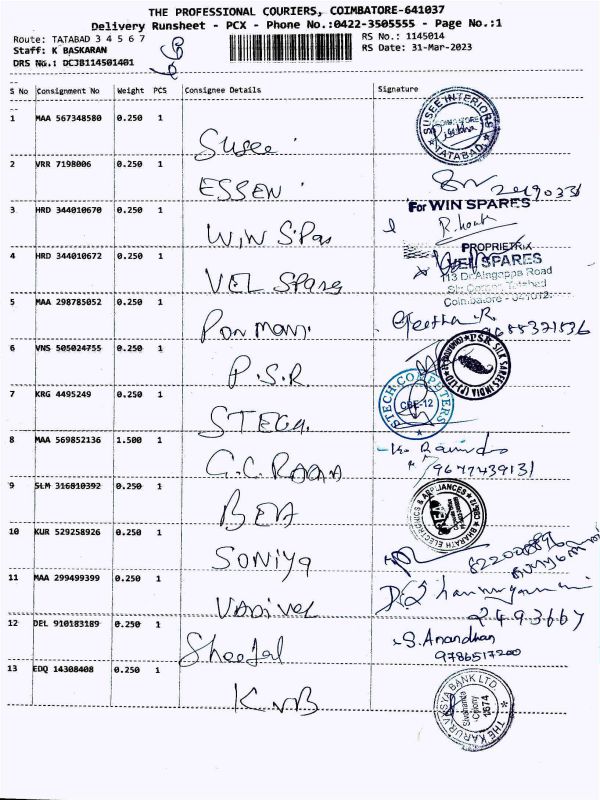 THE PROFESSIONAL COURIERS, COIMBATORE-641037
Delivery Runsheet - PCX - Phone No.:0422-3505555 - Page No.:1
Route: TATABAD 3 4 5 6 7
RS No.: 1145014
Staff: K BASKARAN
RS Date: 31-Mar-2023
DRS No.: DCJB114501401
S No Consignment No Weight PCS Consignee Details Signature
1 MAA 567348580 0.250 1
SUSEE INTERIORS
TATABAD
Susee
2 VRR 7198006 0.250 1
ESSEN
3 HRD 344010670 0.250 1
For WIN SPARES
WIN Spas
PROPRIETRIX
4 HRD 344010672 0.250 1
VEL SPARES
113 Dr Alagappa Road
VEL Spares
Coimbatore - 641012
5 MAA 298785052 0.250 1
Geetha.R
Pon mani
6 VNS 505024755 0.250 1
P.S.R SILK SAREES INDIA (P) LTD
P.S.R
7 KRG 4495249 0.250 1
STECH COMPUTERS
CBE-12
8 MAA 569852136 1.500 1
9677439131
9 SLM 316810392 0.250 1
BHARATH ELECTRONICS & APPLIANCES
10 KUR 529258926 0.250 1
Soniya
11 MAA 299499399 0.250 1
D.Shanmugam
Vadivel
2493667
12 DEL 910183189 0.250 1
S. Anandhan
Sheetal
9786517200
13 EDQ 14308408 0.250 1
KVB
THE KARUR VYSYA BANK LTD.
Sivananda
Colony
1574